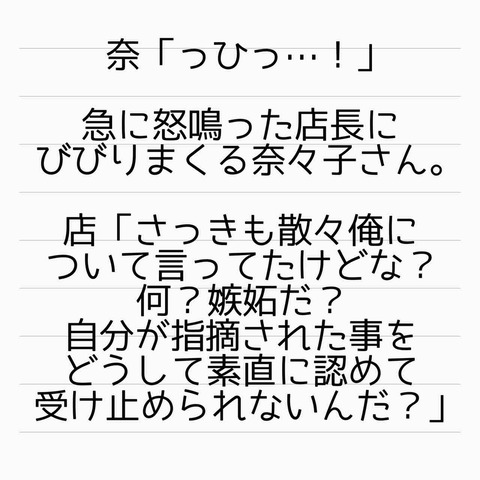 奈「っひっ…！」
急に怒鳴った店長に
びびりまくる奈々子さん。
店「さっきも散々俺に
ついて言ってたけどな？
何？嫉妬だ？
自分が指摘された事を
どうして素直に認めて
受け止められないんだ？」